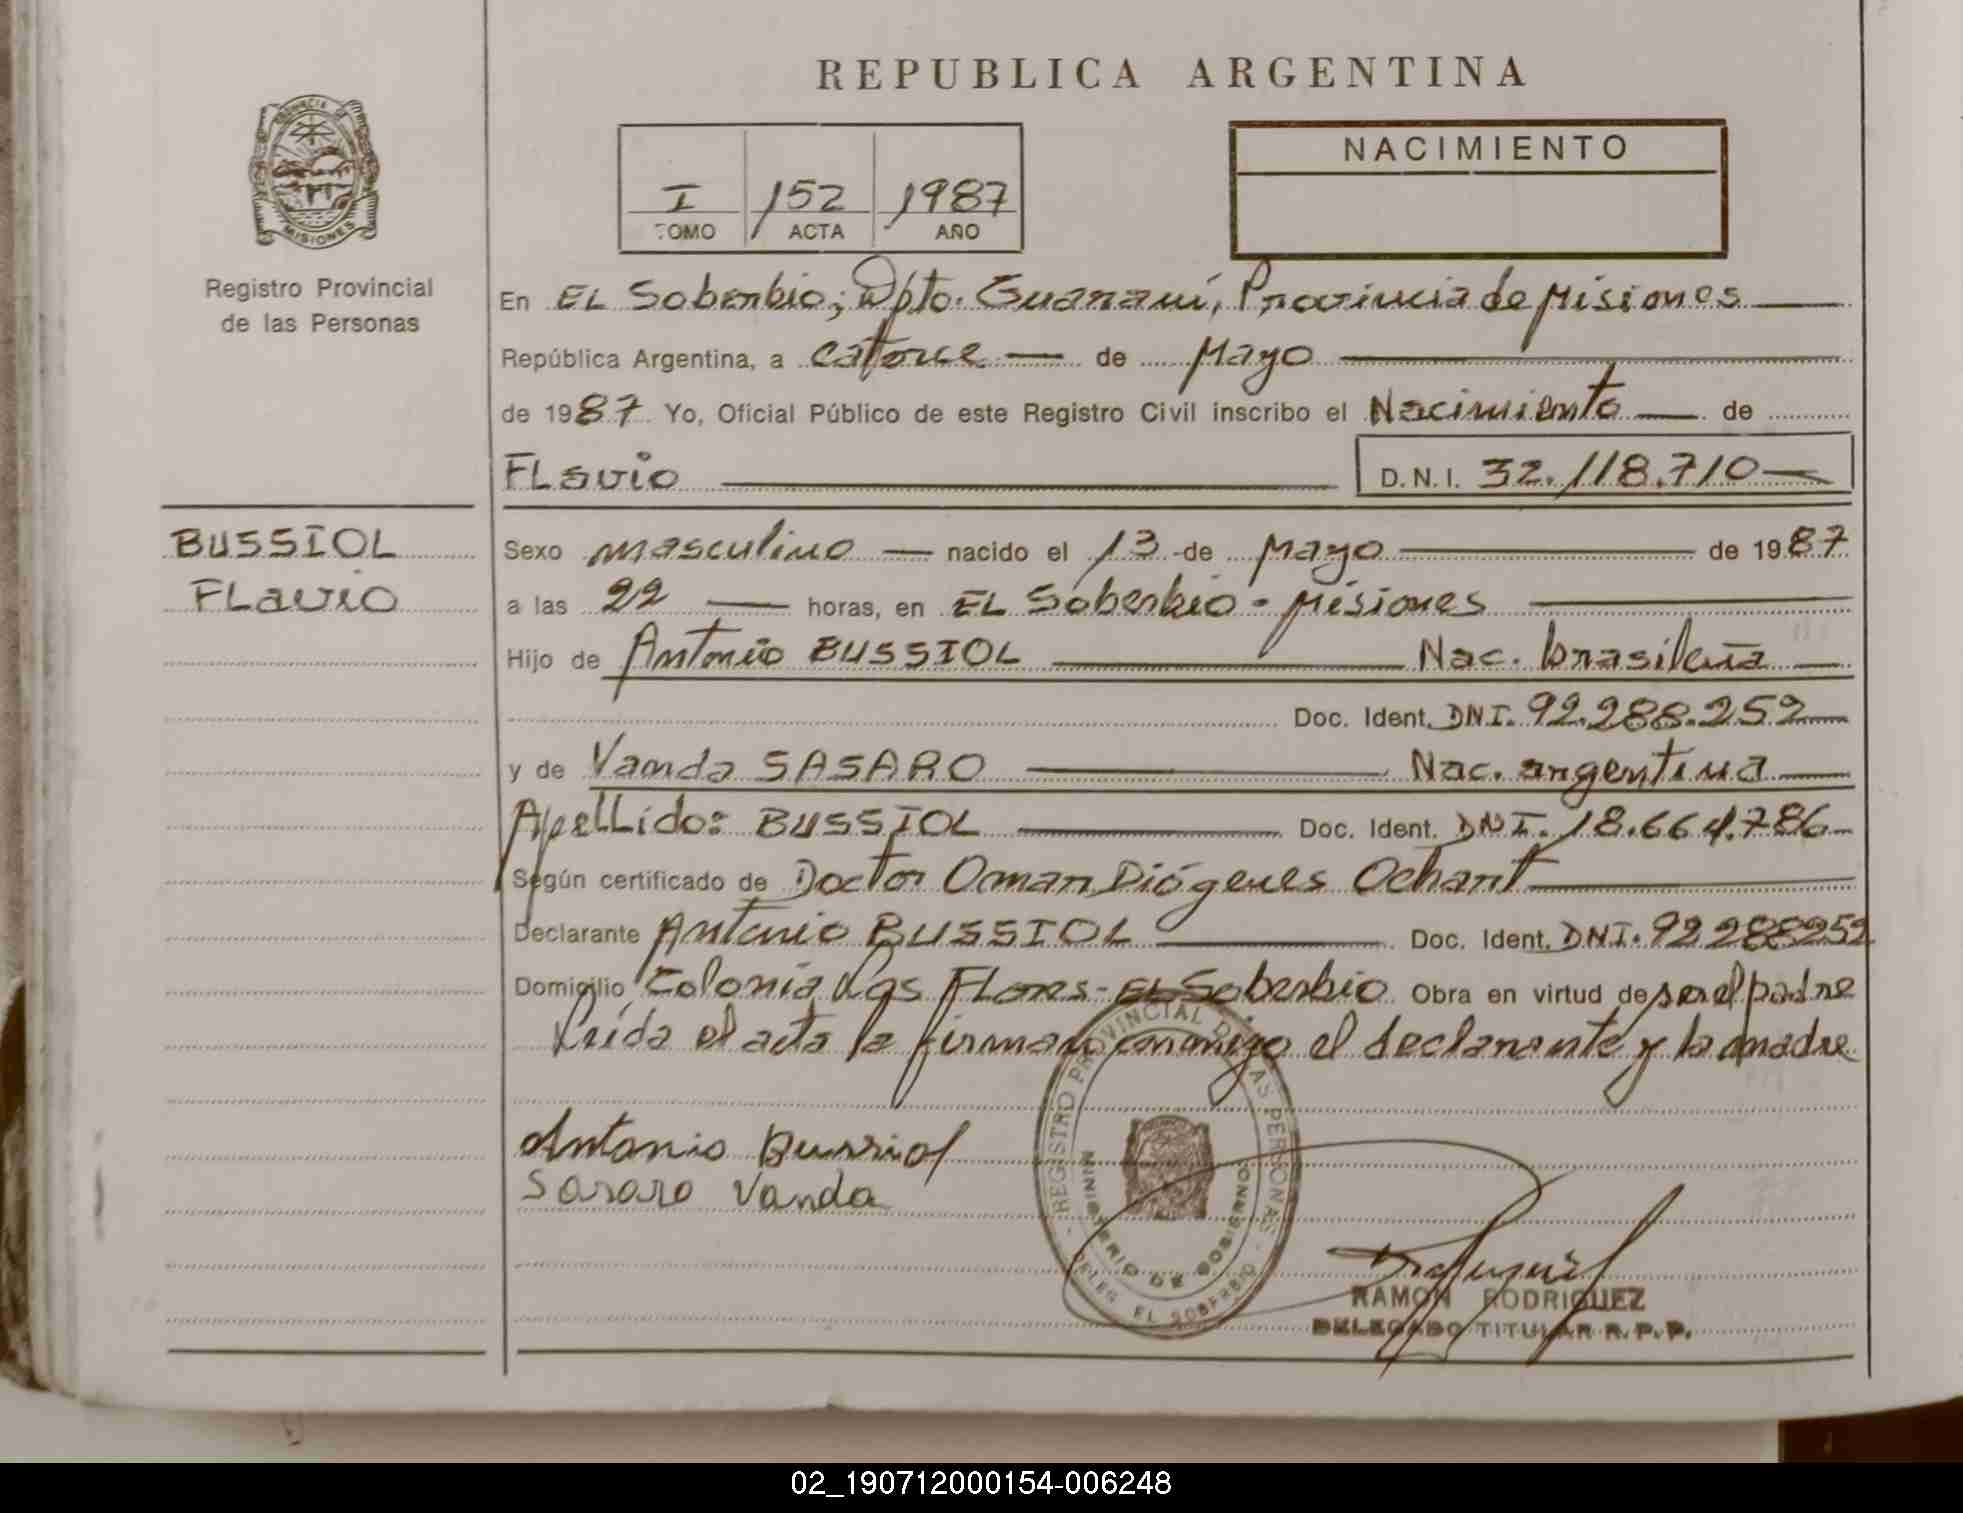 REPUBLICA ARGENTINA
PROVINCIA DE
MISIONES
Registro Provincial
de las Personas
I 152 1987
TOMO ACTA AÑO
NACIMIENTO
En EL Soberbio; Dpto. Guaraní, Provincia de Misiones
República Argentina, a catorce de Mayo
de 1987 Yo, Oficial Público de este Registro Civil inscribo el Nacimiento de
FLavio D.N.I. 32.118.710
BUSSIOL
FLavio
Sexo masculino nacido el 13 de Mayo de 1987
a las 22 horas, en EL Soberbio - Misiones
Hijo de Antonio BUSSIOL Nac. brasileña
Doc. Ident. DNI. 92.288.252
y de Vanda SASARO Nac. argentina
ApeLLido: BUSSIOL Doc. Ident. DNI. 18.664.786
Según certificado de Doctor Omar Diógenes Ochant
Declarante Antonio BUSSIOL Doc. Ident. DNI. 92288252
Domicilio Colonia Las FLores - EL Soberbio Obra en virtud de ser el padre
Leída el acta la firman conmigo el declarante y la madre
Antonio Bussiol
Sasaro Vanda
REGISTRO PROVINCIAL DE LAS PERSONAS
MINISTERIO DE GOBIERNO
DELEG. EL SOBERBIO
RAMON RODRIGUEZ
DELEGADO TITULAR R.P.P.
02_190712000154-006248